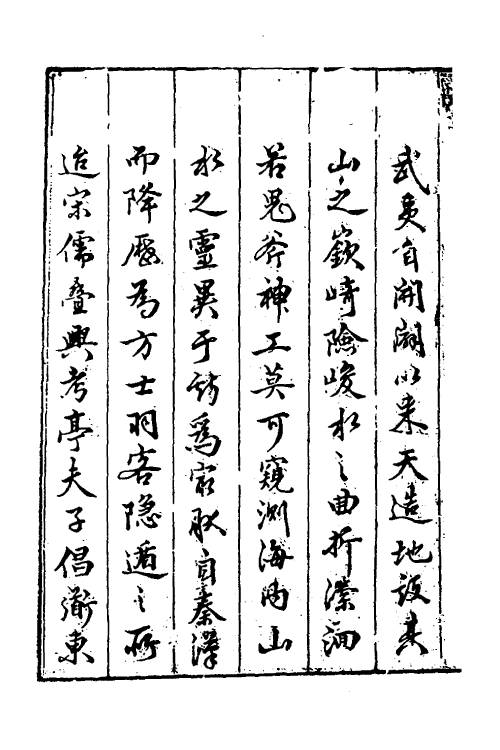 武夷自開闢以来天造地設其
山之嶔崎險峻水之曲折瀠洄
若鬼斧神工莫可窺測海內山
水之靈異于斯為最耿自秦漢
而降歷為方士羽客隐遁之所
迨宋儒疊興考亭夫子倡衜東